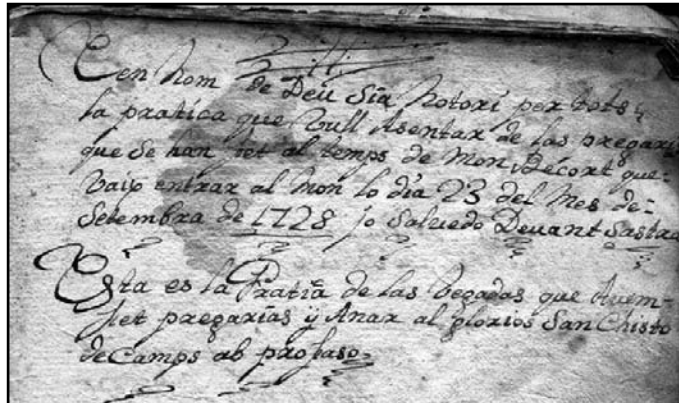 En nom de Deu Sia Notori per tots y
la pratica que Vull Asentar de las pregari
que Se han fet al temps de Mon Récort que-
Vaix entrar al Mon lo dia 23 del Mes de-
Setembra de 1728 jo Salvedo Devant Sastra
Esta es la Pratia de las begadas que Avem-
fet pregarias y Anar al glorios San Chisto
de Camps ab profaso-